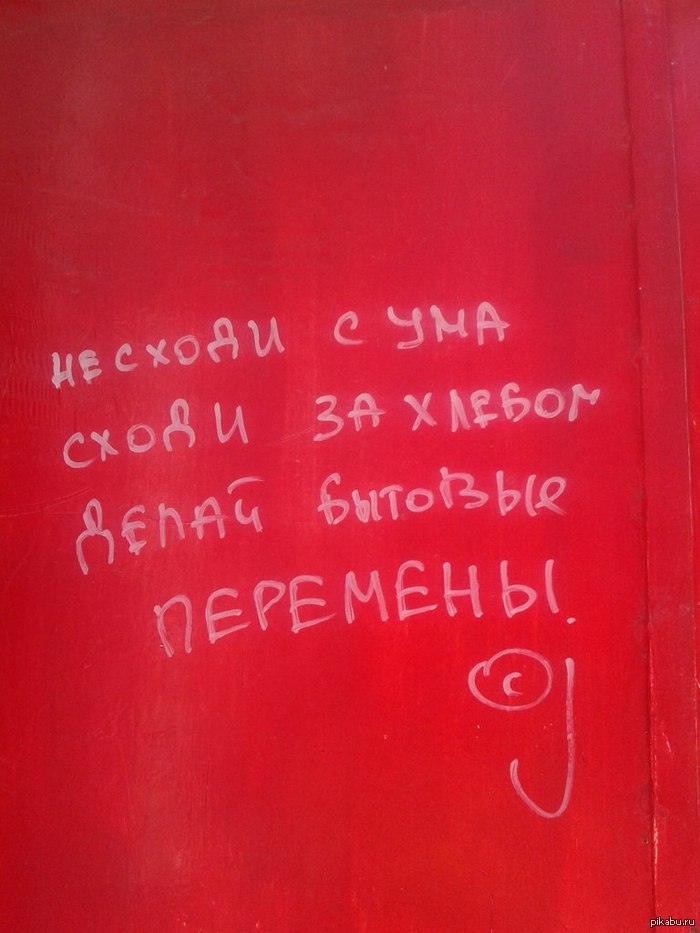 НЕ СХОДИ С УМА
СХОДИ ЗА ХЛЕБОМ
ДЕЛАЙ БЫТОВЫЕ
ПЕРЕМЕНЫ.
© j
pikabu.ru